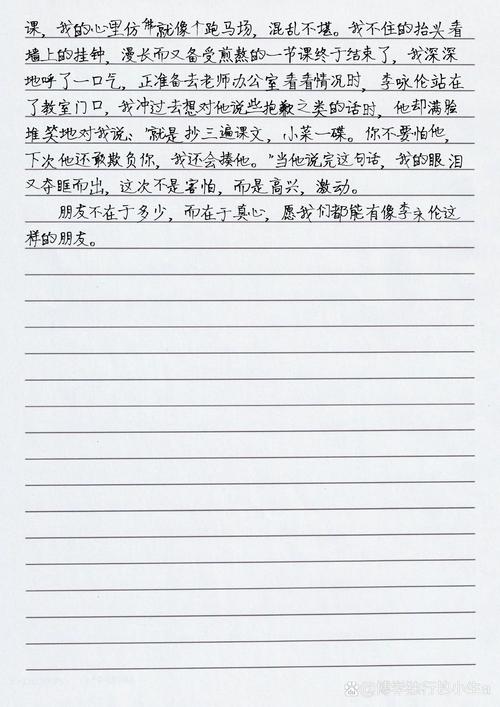 课，我的心里仿佛就像个跑马场，混乱不堪。我不住的抬头看
墙上的挂钟，漫长而又备受煎熬的一节课终于结束了，我深深
地呼了一口气，正准备去老师办公室看看情况时，李咏伦站在
了教室门口，我冲过去想对他说些抱歉之类的话时，他却满脸
堆笑地对我说："就是抄三遍课文，小菜一碟。你不要怕他，
下次他还敢欺负你，我还会揍他。"当他说完这句话，我的眼泪
又夺眶而出，这次不是害怕，而是高兴，激动。
朋友不在于多少，而在于真心，愿我们都能有像李永伦这
样的朋友。